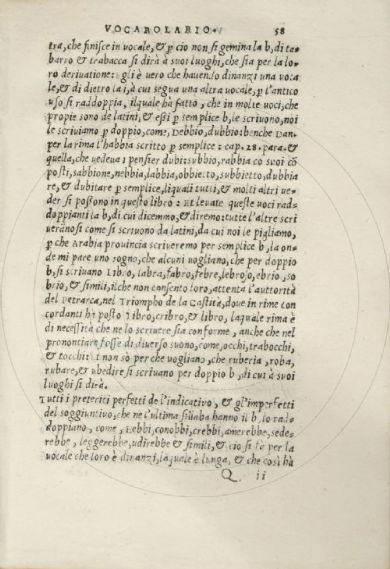 VOCABOLARIO. 58
tra, che finisce in vocale, & ꝑ cio non si gemina la b, di ta-
barro & trabacca si dirà à suoi luoghi, che sia per la lo-
ro deriuatione: gli è uero che hauendo dinanzi una voca
le, & di dietro la i, à cui segua una altra vocale, ꝑ l'antico
uso si raddoppia, ilquale hà fatto, che in molte uoci, che
proprie sono de latini, & essi ꝑ semplice b, le scriuono, noi
le scriuiamo ꝑ doppio, come, Debbio, dubbio: benche Dan-
per la rima l'habbia scritto ꝑ semplice: cap. 28. para. &
quella, che uedeua i pensier dubi: subbio, rabbia co suoi cõ
posti, sabbione, nebbia, labbia, obbietto, subbietto, dubbia
re, & dubitare ꝑ semplice, liquali tutti, & molti altri ue-
der si possono in questo libro: Et leuate queste uoci rad-
doppianti la b, di cui dicemmo, & diremo: tutte l'altre scri
ueranosi come si scriuono da latini, da cui noi le pigliamo,
ꝑ che Arabia prouincia scriueremo per semplice b, la on-
de mi pare uno sogno, che alcuni uogliano, che per doppio
b, si scriuano Libro, labra, fabro, febre, lebroso, ebrio, so
brio, & simili, il che non consento loro, attenta l'auttorità
del Petrarca, nel Triompho de la Castità, doue in rime con
cordanti hà posto libro, cribro, & libro, laquale rima è
di necessità che ne lo scriuere sia conforme, anche che nel
prononciare fosse di diuerso suono, come, occhi, trabocchi,
& tocchi: et non sò per che uogliano, che ruberia, roba,
rubare, & ubedire si scriuano per doppio b, di cui à suoi
luoghi si dirà.
Tutti i preteriti perfetti de l'indicatiuo, & gl'imperfetti
del soggiuntiuo, che ne l'ultima sillaba hanno il b, lo rad-
doppiano, come, Hebbi, conobbi, crebbi, amerebbe, sede-
rebbe, leggerebbe, udirebbe & simili, & cio si fà per la
uocale che loro è dinanzi, laquale è lunga, & che cosi hà
Q ii